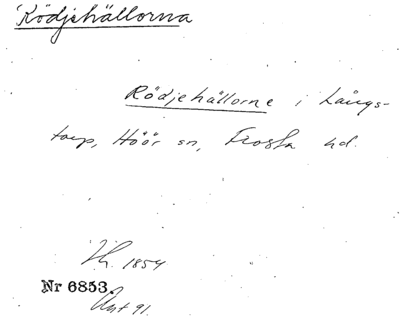 Rödjehällorna
Rödjehällorne i Långs-
torp, Höör sn, Frosta hd.
1854
Nr 6853.
Ant 91.